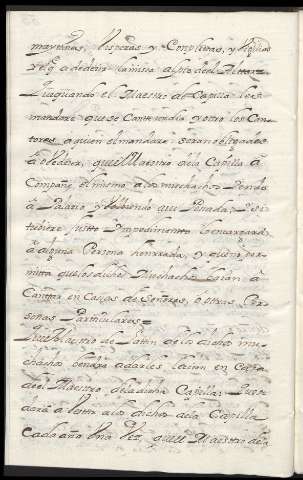 maytines, bisperas, y Conpletas, y
y el q a de decir la missa a de
Y quando el Maestro de Capilla les
mandare que se Cante un dia y otro los Can
tores a quien el mandare seran obligados
a obedecer, que el Maestro dela Capilla a
Compañe el mesmo a los muchachos Donde
a Palacio y
tubiere justo Impedimento lo encargara
a alguna Persona honrrada, y que no per
mitta que los dichos Muchachos baian a
Canttar en Casas de Señores, o otras Per
sonas Particulares =
que el Maestro de Lattin de los dichos mu
chachos benga a darles lecion en Casa
del Maestro dela dicha Capilla Que se
dara a bestir a los dichos dela Capilla
Cada año una bez, que el Maestro de